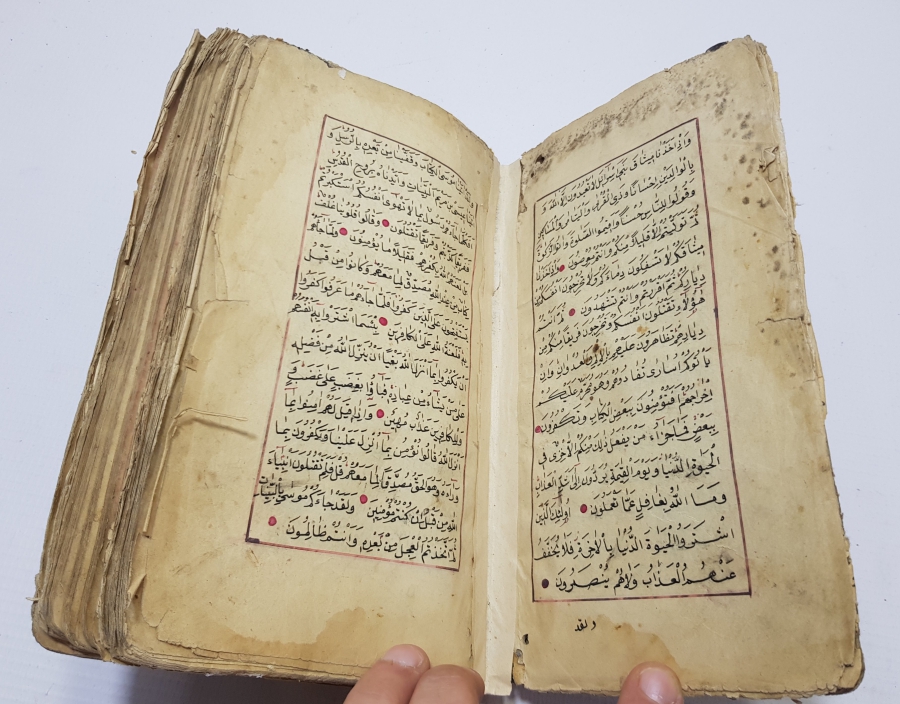 وَاِذْ اَخَذْنَا مِيثَاقَ بَنِى اِسْرَائِلَ لَا تَعْبُدُونَ اِلَّا اللهَ وَ
بِالْوَالِدَيْنِ اِحْسَانًا وَذِى الْقُرْبٰى وَالْيَتَامٰى وَالْمَسَاكِينِ
وَقُولُوا لِلنَّاسِ حُسْنًا وَاَقِيمُوا الصَّلٰوةَ وَاٰتُوا الزَّكٰوةَ
ثُمَّ تَوَلَّيْتُمْ اِلَّا قَلِيلًا مِنْكُمْ وَاَنْتُمْ مُعْرِضُونَ وَاِذْ اَخَذْنَا
مِيثَاقَكُمْ لَا تَسْفِكُونَ دِمَاءَكُمْ وَلَا تُخْرِجُونَ اَنْفُسَكُمْ مِنْ
دِيَارِكُمْ ثُمَّ اَقْرَرْتُمْ وَاَنْتُمْ تَشْهَدُونَ ثُمَّ اَنْتُمْ
هٰؤُلَاءِ تَقْتُلُونَ اَنْفُسَكُمْ وَتُخْرِجُونَ فَرِيقًا مِنْكُمْ مِنْ
دِيَارِهِمْ تَظَاهَرُونَ عَلَيْهِمْ بِالْاِثْمِ وَالْعُدْوَانِ وَاِنْ
يَأْتُوكُمْ اُسَارٰى تُفَادُوهُمْ وَهُوَ مُحَرَّمٌ عَلَيْكُمْ
اِخْرَاجُهُمْ اَفَتُؤْمِنُونَ بِبَعْضِ الْكِتَابِ وَتَكْفُرُونَ
بِبَعْضٍ فَمَا جَزَاءُ مَنْ يَفْعَلُ ذٰلِكَ مِنْكُمْ اِلَّا خِزْىٌ فِى
الْحَيٰوةِ الدُّنْيَا وَيَوْمَ الْقِيٰمَةِ يُرَدُّونَ اِلٰى اَشَدِّ الْعَذَابِ
وَمَا اللهُ بِغَافِلٍ عَمَّا تَعْمَلُونَ اُولٰئِكَ الَّذِينَ
اشْتَرَوُا الْحَيٰوةَ الدُّنْيَا بِالْاٰخِرَةِ فَلَا يُخَفَّفُ
عَنْهُمُ الْعَذَابُ وَلَاهُمْ يُنْصَرُونَ
ولقد
اٰتَيْنَا مُوسَى الْكِتَابَ وَقَفَّيْنَا مِنْ بَعْدِهِ بِالرُّسُلِ وَ
اٰتَيْنَا عِيسَى بْنَ مَرْيَمَ الْبَيِّنَاتِ وَاَيَّدْنَاهُ بِرُوحِ الْقُدُسِ
اَفَكُلَّمَا جَاءَكُمْ رَسُولٌ بِمَا لَا تَهْوٰى اَنْفُسُكُمُ اسْتَكْبَرْتُمْ
فَفَرِيقًا كَذَّبْتُمْ وَفَرِيقًا تَقْتُلُونَ وَقَالُوا قُلُوبُنَا غُلْفٌ
بَلْ لَعَنَهُمُ اللهُ بِكُفْرِهِمْ فَقَلِيلًا مَا يُؤْمِنُونَ وَلَمَّا جَاءَهُمْ
كِتَابٌ مِنْ عِنْدِ اللهِ مُصَدِّقٌ لِمَا مَعَهُمْ وَكَانُوا مِنْ قَبْلُ
يَسْتَفْتِحُونَ عَلَى الَّذِينَ كَفَرُوا فَلَمَّا جَاءَهُمْ مَا عَرَفُوا كَفَرُوا
بِهِ فَلَعْنَةُ اللهِ عَلَى الْكَافِرِينَ بِئْسَمَا اشْتَرَوْا بِهِ اَنْفُسَهُمْ
اَنْ يَكْفُرُوا بِمَا اَنْزَلَ اللهُ بَغْيًا اَنْ يُنَزِّلَ اللهُ مِنْ فَضْلِهِ
عَلٰى مَنْ يَشَاءُ مِنْ عِبَادِهِ فَبَاؤُا بِغَضَبٍ عَلٰى غَضَبٍ وَ
لِلْكَافِرِينَ عَذَابٌ مُهِينٌ وَاِذَا قِيلَ لَهُمْ اٰمِنُوا بِمَا
اَنْزَلَ اللهُ قَالُوا نُؤْمِنُ بِمَا اُنْزِلَ عَلَيْنَا وَيَكْفُرُونَ بِمَا
وَرَاءَهُ وَهُوَ الْحَقُّ مُصَدِّقًا لِمَا مَعَهُمْ قُلْ فَلِمَ تَقْتُلُونَ اَنْبِيَاءَ
اللهِ مِنْ قَبْلُ اِنْ كُنْتُمْ مُؤْمِنِينَ وَلَقَدْ جَاءَكُمْ مُوسٰى بِالْبَيِّنَاتِ
ثُمَّ اتَّخَذْتُمُ الْعِجْلَ مِنْ بَعْدِهِ وَاَنْتُمْ ظَالِمُونَ